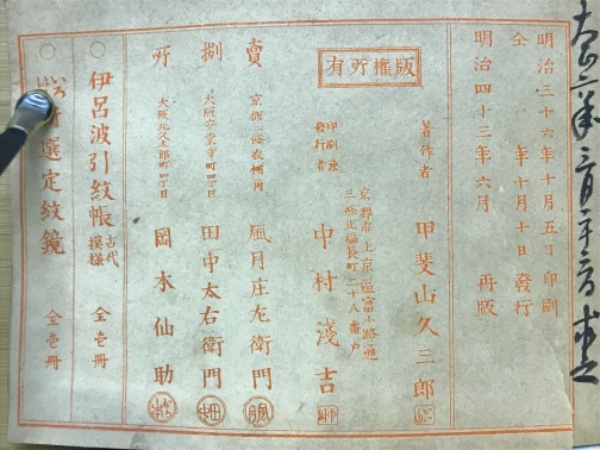 明治三十六年十月五日印刷
仝年十月十日發行
明治四十三年六月再版
版權所有
著作者 甲斐山久三郎
印刷兼發行者
京都市上京區富小路通
三條上福長町二十八番戶
中村淺吉
賣捌所
京都二條衣棚角 風月庄左衛門
大阪安堂寺町四丁目 田中太右衛門
大阪北久太郎町四丁目 岡本仙助
伊呂波引紋帳 古代模樣 全壹冊
選定紋鏡 全壹冊